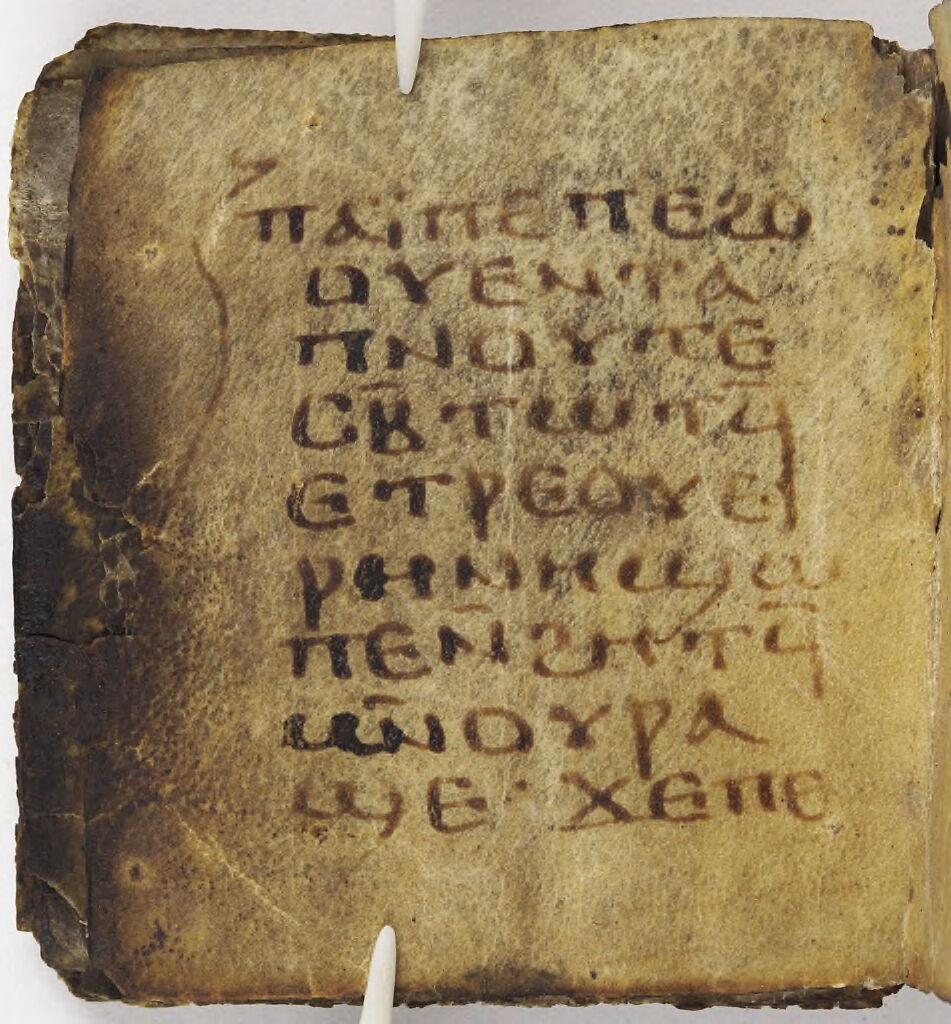 ⲡⲁⲓ̈ⲡⲉⲡⲉϩⲟ
ⲟⲩⲉⲛⲧⲁ
ⲡⲛⲟⲩⲧⲉ
ⲥⲃ̄ⲧⲱⲧϥ̄
ⲉⲧⲣⲉⲟⲩⲉⲓ
ⲣⲏⲛⲏϣⲱ
ⲡⲉⲛ̄ϩⲏⲧϥ̄
ⲙⲛ̄ⲟⲩⲣⲁ
ϣⲉ· ϫⲉⲡⲉ